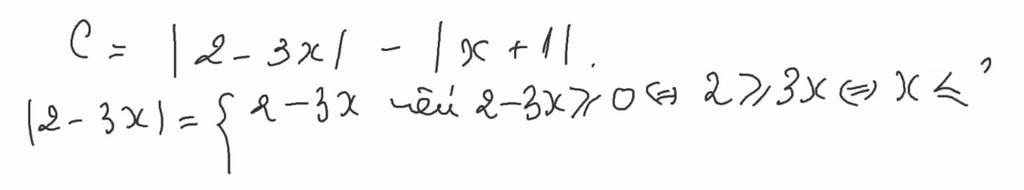 C = |2 - 3x| - |x + 1|.
|2 - 3x| = { 2 - 3x nếu 2 - 3x ⩾ 0 ⇔ 2 ⩾ 3x ⇔ x ≤